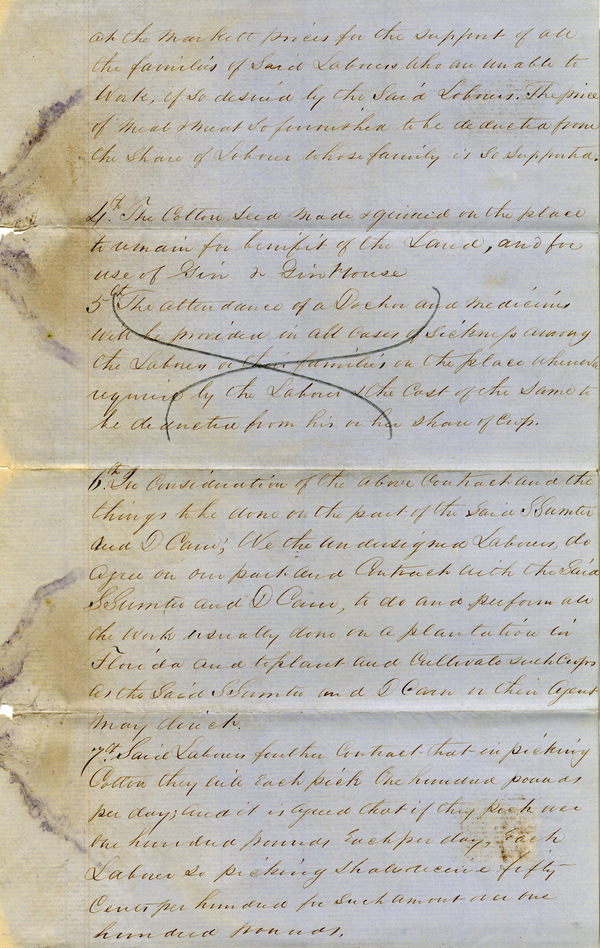 at the Markett prices for the support of all
the families of Said Laborers who are unable to
Work, if so desired by the Said Laborers. The price
of Meal & Meat so furnished to be deducted from
the Share of Laborer whose family is so supported.
4th. The Cotton Seed made & ginned on the place
to remain for benifit of the Land, and for
use of Gin & Gin House
5th The attendance of a Doctor and medicines
will be provided in all cases of Sickness among
the Laborers or their families on the place whenever
required by the Laborer & the Cost of the same to
be deducted from his or her share of Crop.
6th. In Consideration of the above Contract and the
things to be done on the part of the Said S Sumter
and D Carn; We the undersigned Laborers, do
agree on our part and Contract with the Said
S Sumter and D Carn, to do and perform all
the Work usually done on a plantation in
Florida and to plant and Cultivate such Crops
as the Said S Sumter and D Carn or their Agent
may direct.
7th. Said Laborers further Contract that in picking
Cotton they will Each pick One hundred pounds
per day; and it is agreed that if they pick over
One hundred pounds Each per day, Each
Laborer so picking Shall receive fifty
Cents per hundred for such amount over one
hundred pounds.